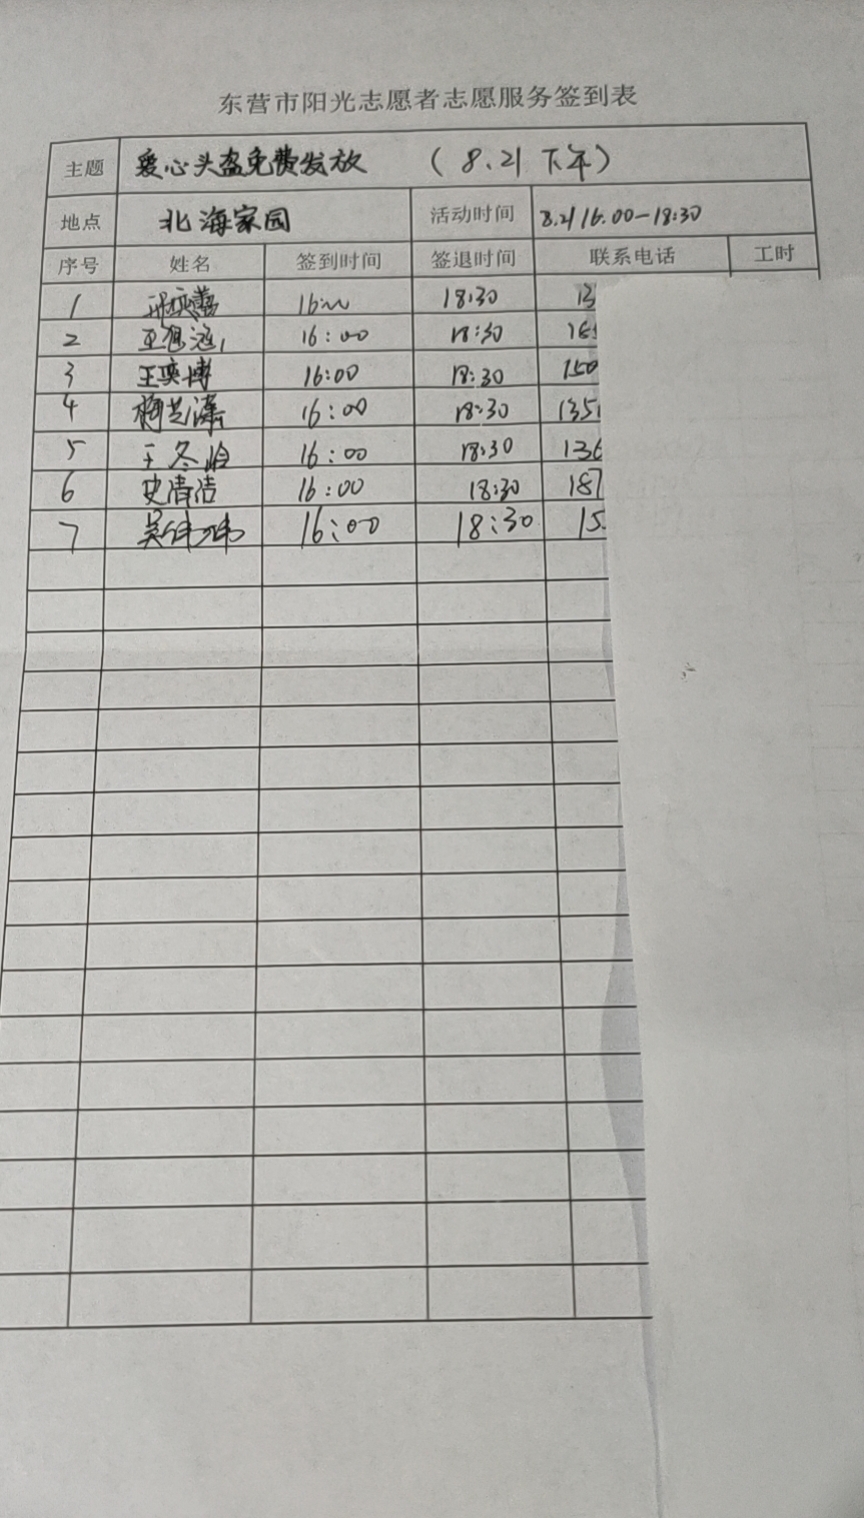 东营市阳光志愿者志愿服务签到表
主题 爱心头盔免费发放 (8.21 下午)
地点 北海家园 活动时间 8.21 16:00-18:30
序号 姓名 签到时间 签退时间 联系电话 工时
1 18:30 13
2 16:00 18:30
3 王奕博 16:00 18:30 150
4 16:00 18:30 1351
5 16:00 18:30 136
6 史清洁 16:00 18:30 187
7 16:00 18:30 15